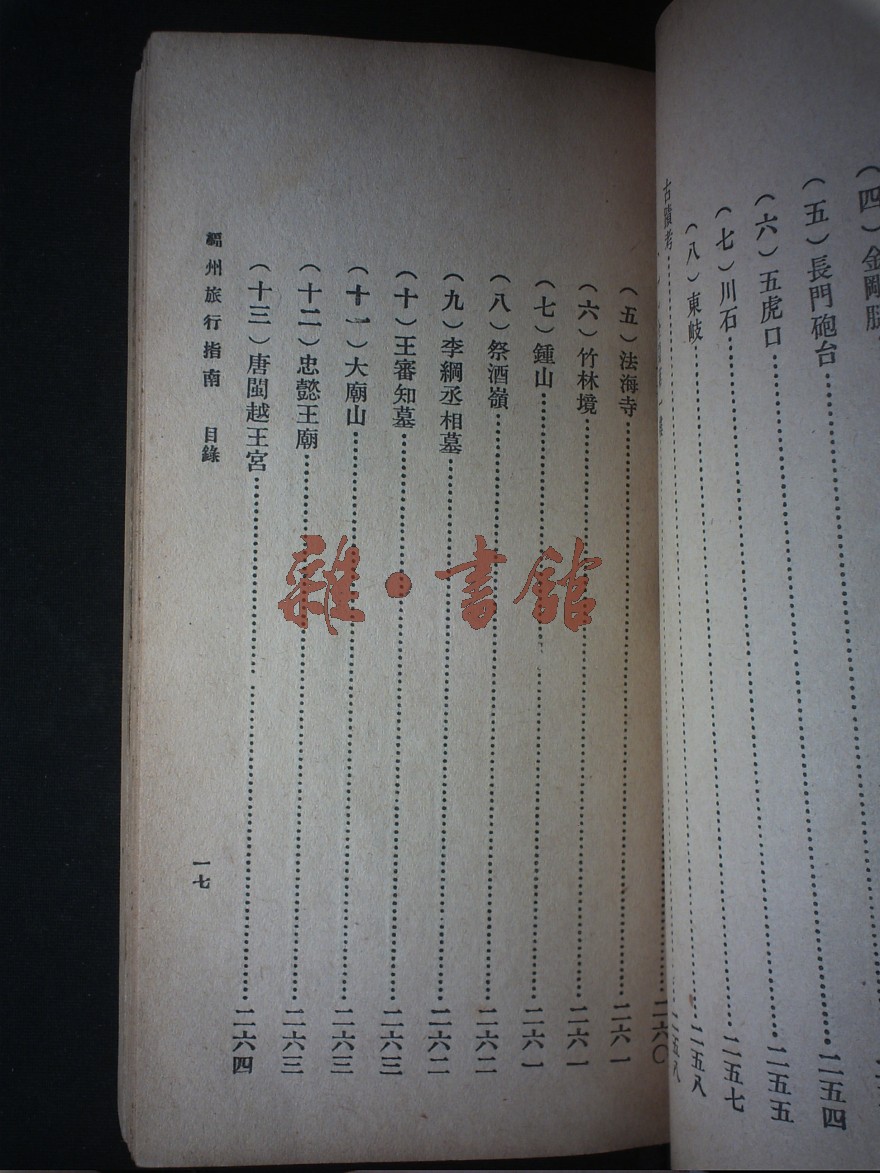 （四）金剛腿
（五）長門砲台……二五四
（六）五虎口……二五五
（七）川石……二五七
（八）東岐……二五八
古蹟考……二五八
二六〇
（五）法海寺……二六一
（六）竹林境……二六一
（七）鍾山……二六一
（八）祭酒嶺……二六二
（九）李綱丞相墓……二六二
（十）王審知墓……二六三
（十一）大廟山……二六三
（十二）忠懿王廟……二六三
（十三）唐閩越王宮……二六四
福州旅行指南　目錄
一七
雜·書館